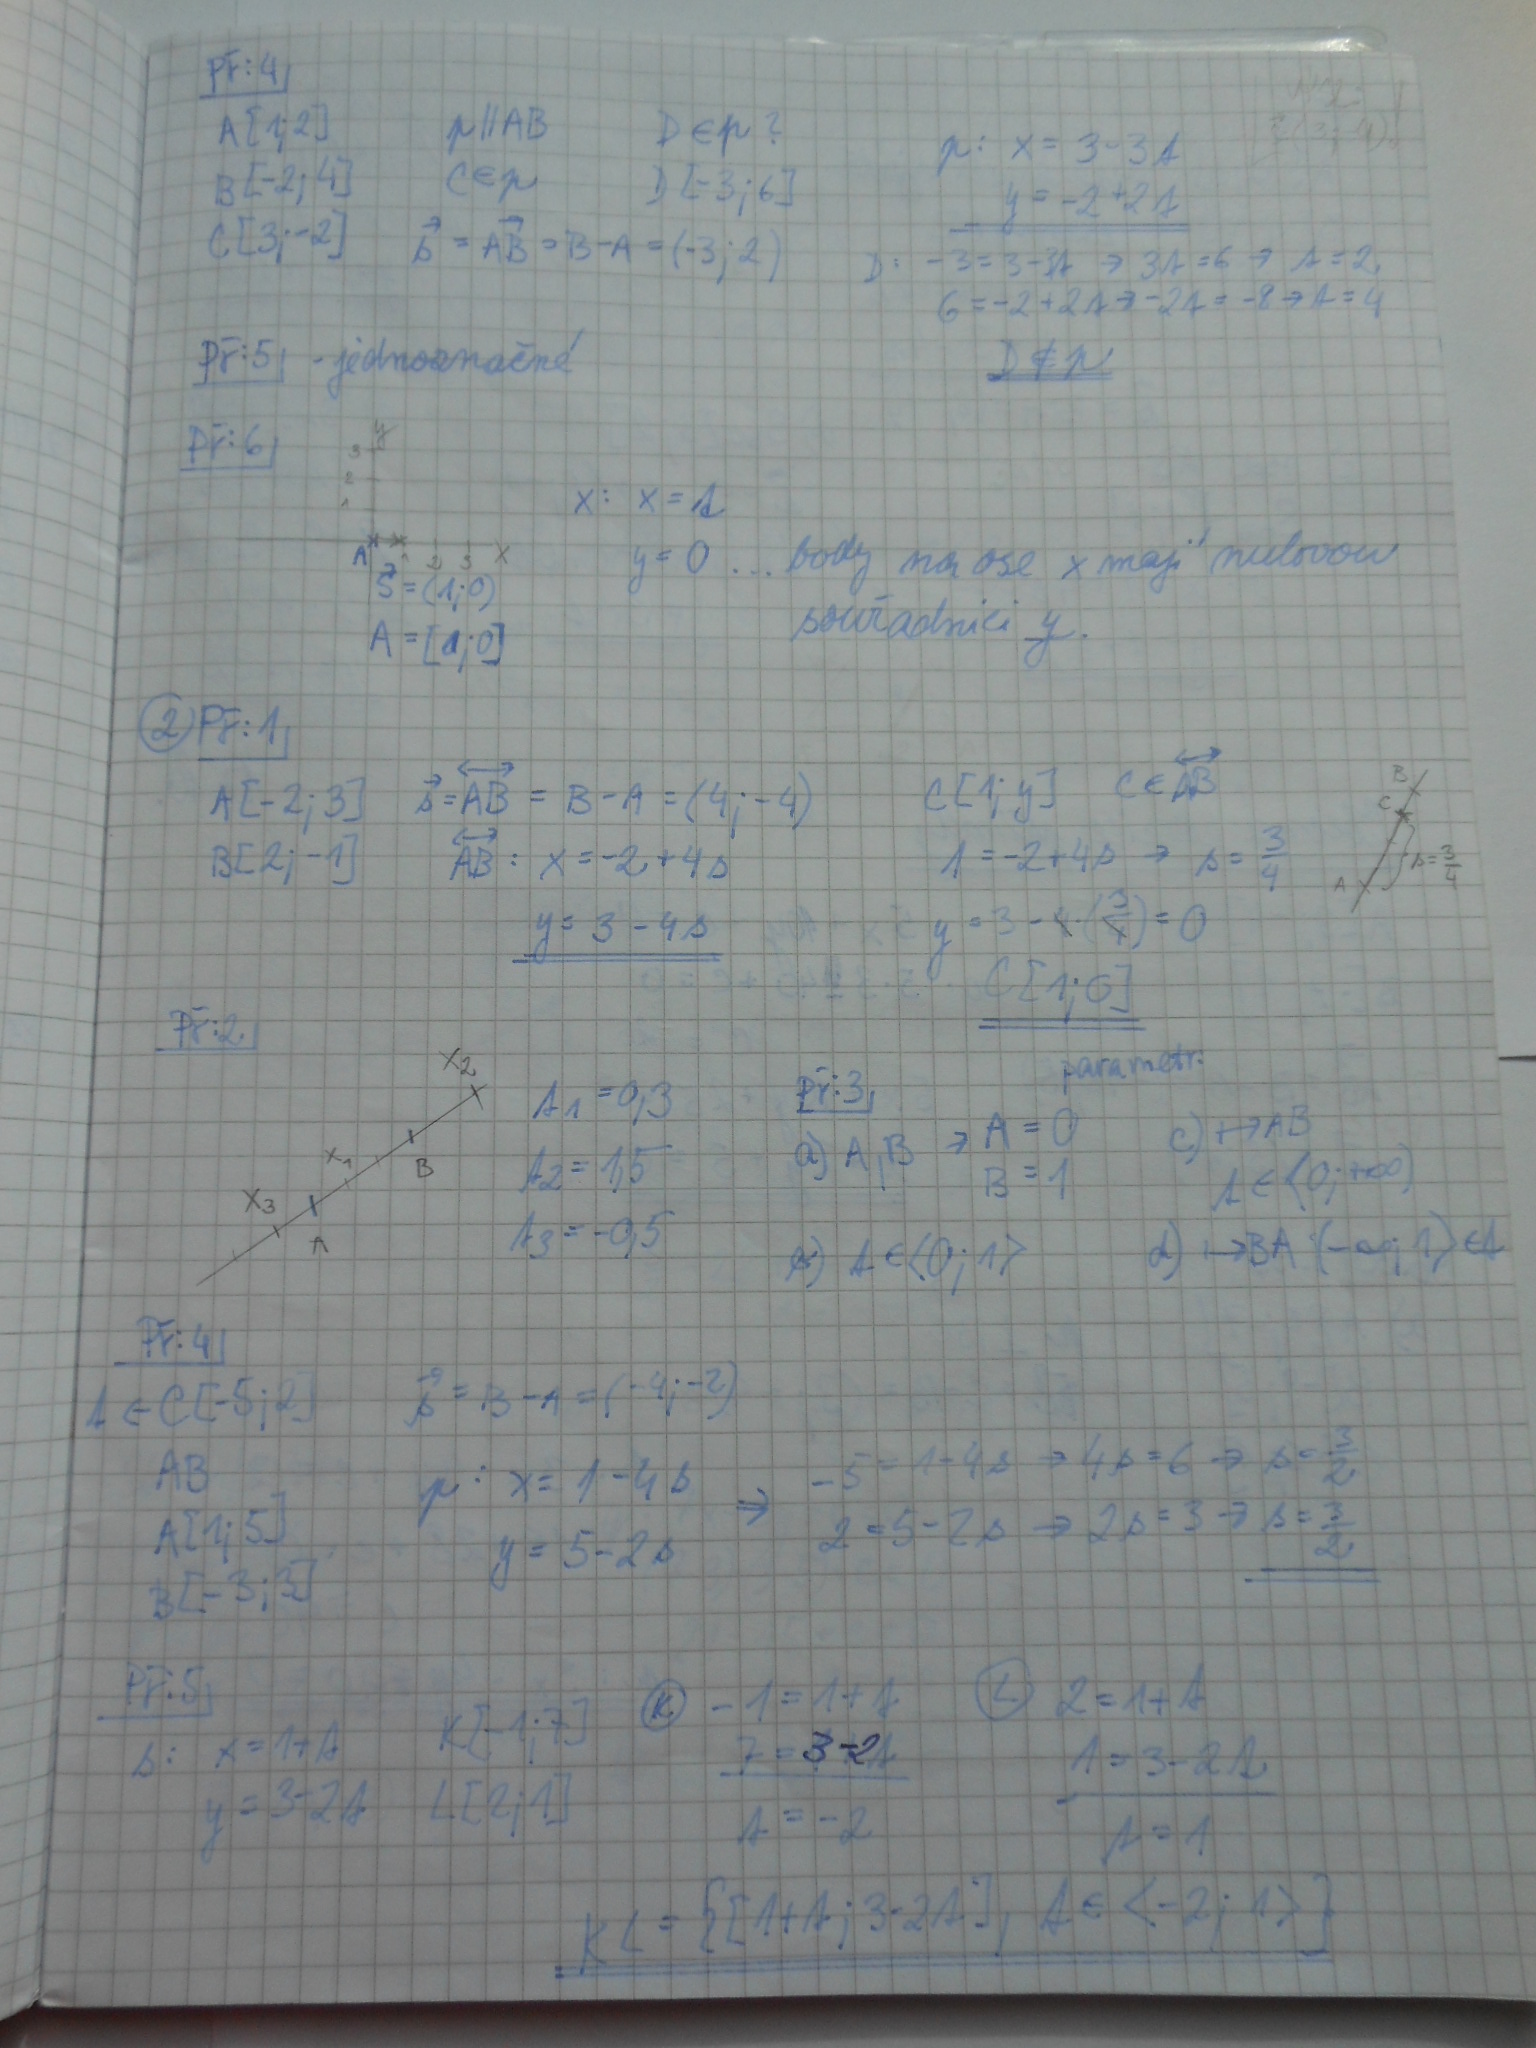 Př: 4
A[1;2] p||AB D∈p? p: x = 3-3t
B[-2;4] C∈p D[-3;6] y = -2+2t
C[3;-2] s⃗ = AB⃗ = B-A = (-3;2) D: -3=3-3t → 3t=6 → t=2
6=-2+2t → -2t=-8 → t=4
D∉p
Př:5 - jednoznačné
Př:6
y
3
2
1
A 1 2 3 x
s⃗ = (1;0)
A = [0;0]
x: x = t
y = 0 ... body na ose x mají nulovou
souřadnici y.
② Př: 1
A[-2;3] s⃗ = AB = B-A = (4;-4) C[1;y] C∈AB
B[2;-1] AB: x = -2+4s 1 = -2+4s → s = 3/4
y = 3-4s y = 3-4·(3/4) = 0
C[1;0]
B
C
A s=3/4
Př:2
X2
X1
B
X3
A
t1 = 0,3
t2 = 1,5
t3 = -0,5
Př:3 parametr:
a) A,B → A = 0
B = 1
b) t∈⟨0;1⟩
c) ↦AB
t∈⟨0;+∞)
d) ↦BA (-∞;1⟩∈t
Př:4
t∈C[-5;2] s⃗ = B-A = (-4;-2)
AB p: x = 1-4s ⇒ -5=1-4s → 4s=6 → s=3/2
A[1;5] y = 5-2s 2=5-2s → 2s=3 → s=3/2
B[-3;3]
Př:5
s: x=1+t K[-1;7] Ⓚ -1=1+t Ⓛ 2=1+t
y=3-2t L[2;1] 7=3-2t 1=3-2t
t=-2 t=1
KL={[1+t;3-2t], t∈⟨-2;1⟩}